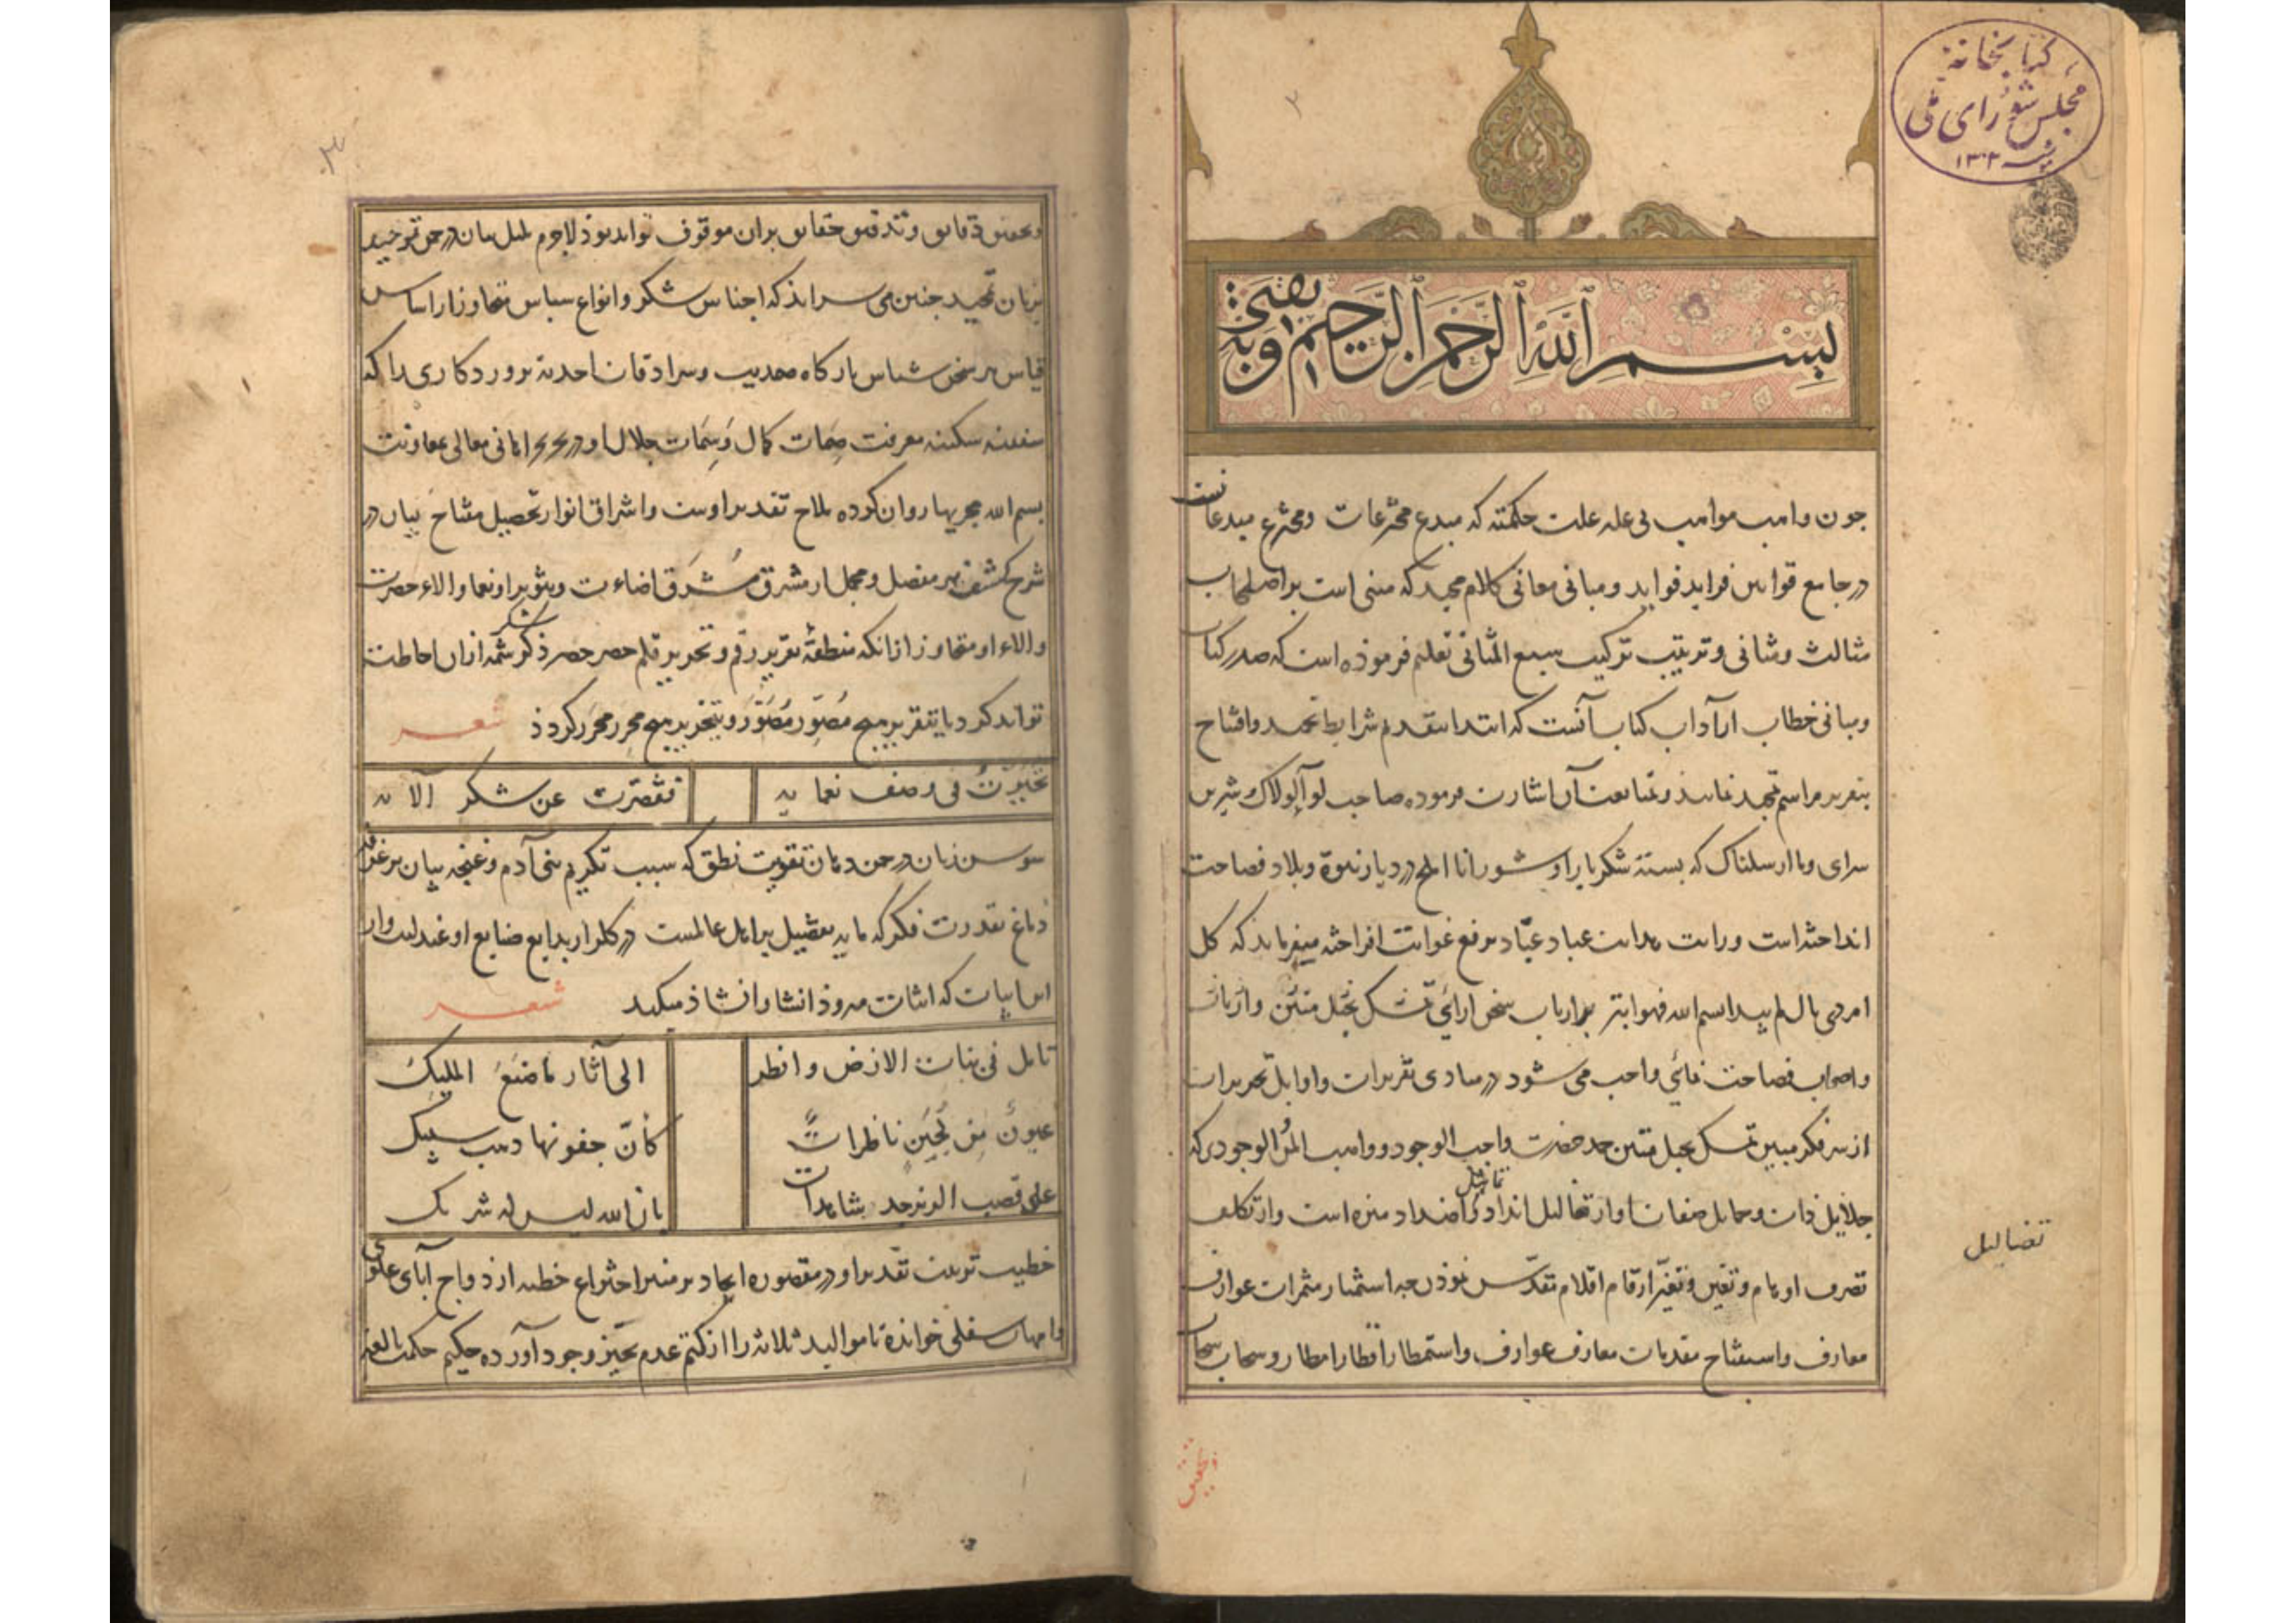 کتابخانه
مجلس شورای ملی
۱۳۰۳
۲
بسم الله الرحمن الرحیم وبه ثقتی
جون واهب مواهب بی عله علت حکمته که مبدع مخترعات ومخترع مبدعات است
در جامع قوانین فراید فواید ومبانی معانی کلام مجید که مبنی است بر اصطحاب
مثالث ومثانی وترتیب ترکیب سبع المثانی تعلیم فرموذه است که صدر کتاب
ومبانی خطاب از آداب کتاب آنست که ابتدا بتقدیم شرایط تحمید وافتتاح
بتقریر مراسم تمجید نمایند ومتابعت آن اشارت فرموده صاحب لوآ لولاک شیرین
سرای وما ارسلناک که بسته شکربار او شور انا املح در دیار نبوة وبلاد فصاحت
انداخته است ورایت هدایت عباد عبّاد برفع غوایت افراخته میفرماید که کل
امر ذی بال لم یبدا بسم الله فهو ابتر بر ارباب سخن ارائی تمسک بحبل متین وازباب
واصحاب فصاحت نمائی واجب می شود در مبادی تقریرات واوایل تحریرات
از سر فکر مبین تمسک بحبل متین حمد حضرت واجب الوجود وواهب المن الوجودی که
جلایل ذات وجمایل صفات او از تخالیل انداد واضداد منزه است واز تکلف
تماثیل
تضالیل
تصرف اوهام وتعین وتغیّر ارقام اقلام تقدّس نموذن چه استثمار مثمرات عوارف
معارف واستفتاح مقدمات معارف عوارف واستمطار اقطار امطار وسحاب سحاب
وتحقیق
۳
وتحقیق دقایق وتدقیق حقایق بران موقوف تواند بوذ لاجرم بلبل بیان در چمن توحید
بزبان تمجید جنین می سراید که اجناس شکر وانواع سپاس متجاوز از اساس
قیاس هر سخن شناس بارگاه صمدیت وسرادقات احدیة پروردکاری را که
سفینه سکینه معرفت صِمات کمال وَسِمات جلال او در بحر امانی معالی بمعاونت
بسم الله مجریها روان کرده ملاح تقدیر اوست واشراق انوار تحصیل مفتاح بیان در
شرح کشف هر مفصل ومجمل از مشرق مُشرَق اضاءت وتنویر او نعما والاء حضرت
والاء او متجاوز از انکه منطقهٔ تقریر رقم وتحریر قلم حصر حصر ذکر شکر شمه ازان احاطت
تواند کرد یا بتقریر هیچ مُصَوِّر مُصَوَّر وبتحریر هیچ محرِر محرَر کردد
شعر
تحیّرتُ فی وصف نعمایه
فقصّرت عن شکر آلایه
سوسن زبان در چمن دهان بتقویت نطق که سبب تکریم بنی آدم وغنچه بیان بر غرفه
دماغ بقدرت فکر که مایه تفضیل بر اهل عالمست در کلزار بدایع صنایع او عندلیب وار
این ابیات که اثبات میروذ انشا وانشاذ میکند
شعر
تامل فی نبات الارض وانظر
الی آثار ما صَنَعَ الملیکُ
عیونٌ مِن لُجَینٍ ناظراتٌ
کأنّ جفونها ذهب سبیک
علی قصب الزبرجد شاهدات
بان الله لیس له شریک
خطیب تربیت تقدیر او در مقصوره ایجاد بر منبر اختراع خطبه ازدواج آبای علوی
وامهات سفلی خوانده تا موالید ثلاثه را از کتم عدم بحیّز وجود آورده حکیم حکمت بالغه